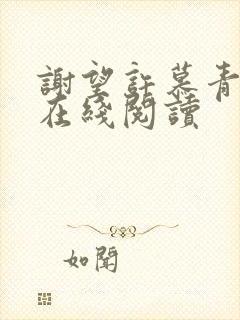 謝望許慕青
在綫閱讀
如聞